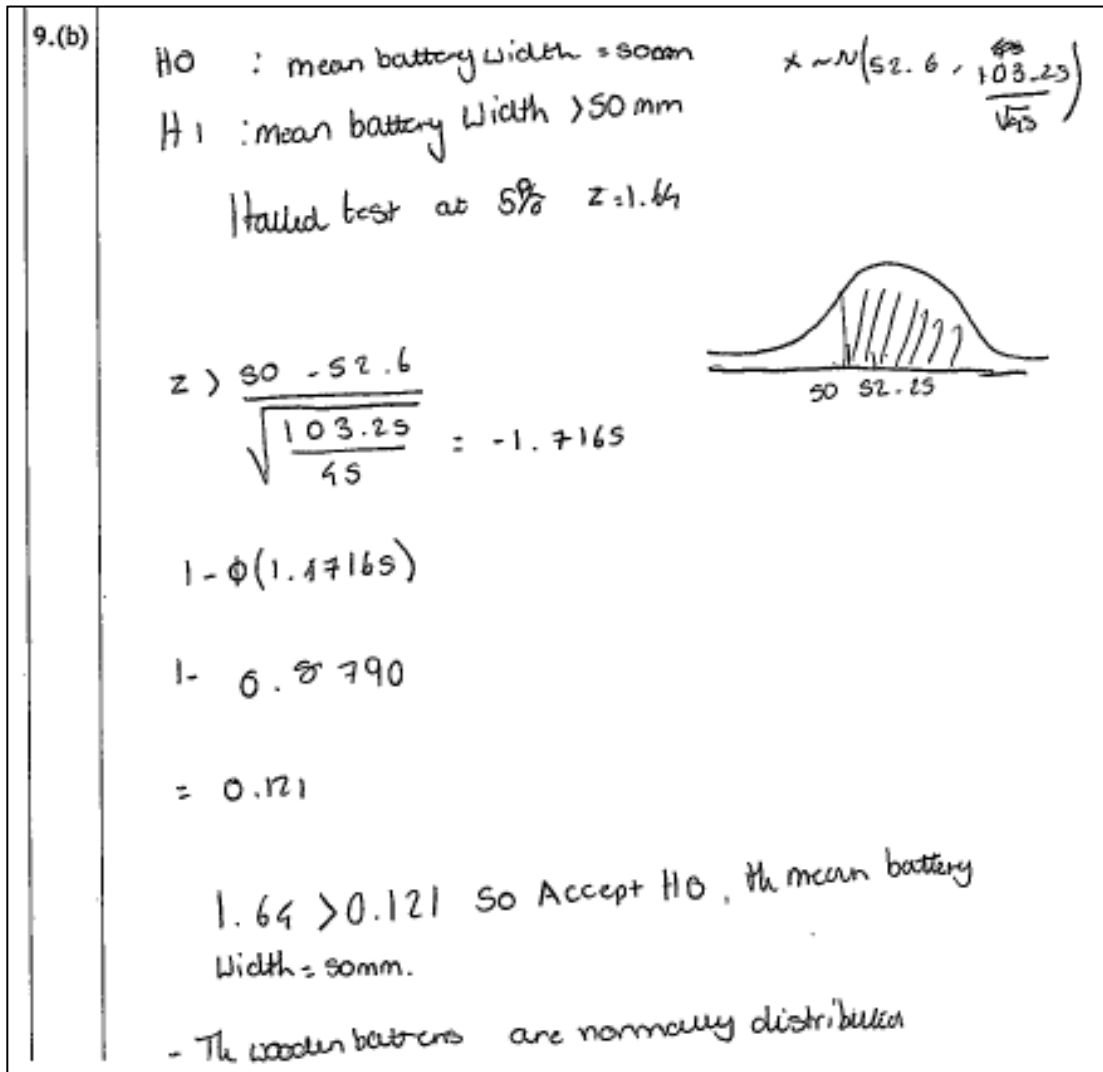 9.(b)
H0 : mean battery width = 50mm
x ~ N(52.6, 103.25 / √45)
H1 : mean battery width > 50mm
1 tailed test at 5% z = 1.64
z > (50 - 52.6) / √(103.25 / 45) = -1.7165
50 52.25
1 - Φ(1.17165)
1 - 0.8790
= 0.121
1.64 > 0.121 So Accept H0, th mean battery
Width = 50mm.
- Th wooden battens are normally distributed